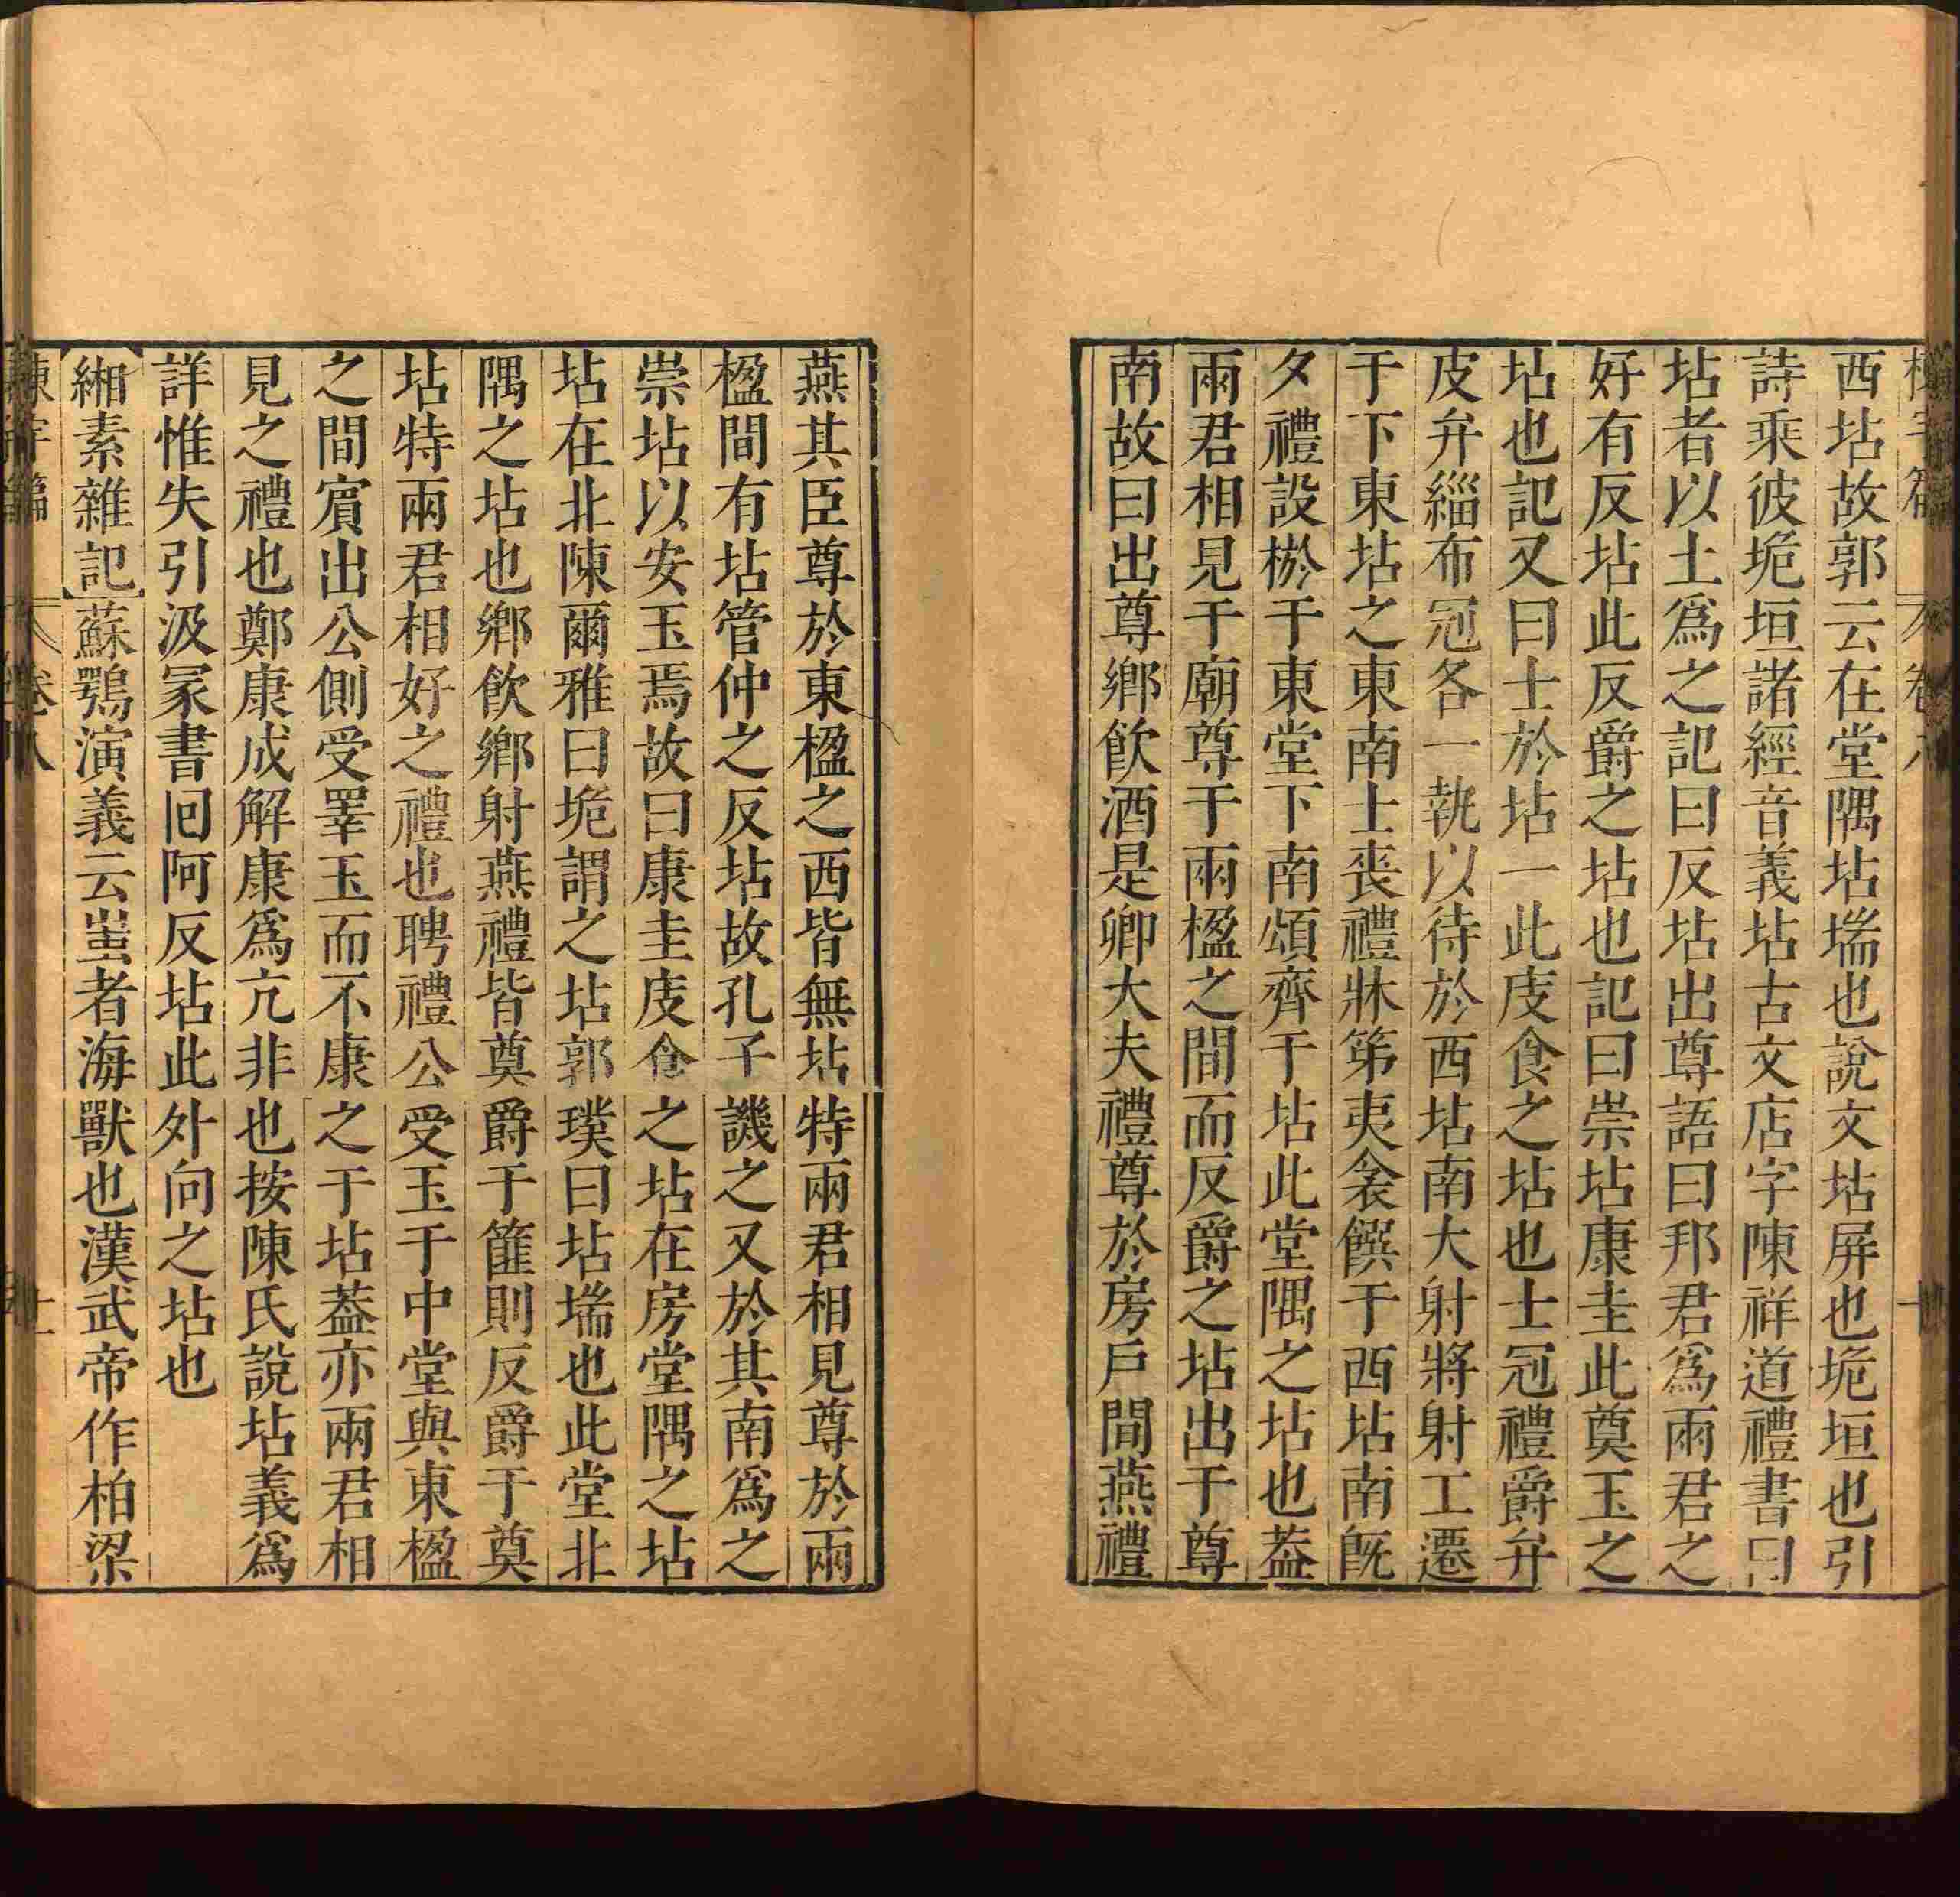 西坫故郭云在堂隅坫㙐也說文坫屏也垝垣也引
詩乘彼垝垣諸經音義坫古文店字陳祥道禮書曰
坫者以土爲之記曰反坫出尊語曰邦君爲兩君之
好有反坫此反爵之坫也記曰崇坫康圭此奠玉之
坫也記又曰士於坫一此庋食之坫也士冠禮爵弁
皮弁緇布冠各一執以待於西坫南大射將射工遷
于下東坫之東南士喪禮牀第夷衾饌于西坫南旣
夕禮設棜于東堂下南順齊于坫此堂隅之坫也葢
兩君相見于廟尊于兩楹之間而反爵之坫出于尊
南故曰出尊鄉飮酒是卿大夫禮尊於房戶間燕禮
燕其臣尊於東楹之西皆無坫特兩君相見尊於兩
楹間有坫管仲之反坫故孔子譏之又於其南爲之
崇坫以安玉焉故曰康圭庋食之坫在房堂隅之坫
坫在北陳爾雅曰垝謂之坫郭璞曰坫㙐也此堂北
隅之坫也鄉飮鄉射燕禮皆奠爵于篚則反爵于奠
坫特兩君相好之禮也聘禮公受玉于中堂與東楹
之間賓出公側受睪玉而不康之于坫葢亦兩君相
見之禮也鄭康成解康爲亢非也按陳氏說坫義爲
詳惟失引汲冢書回阿反坫此外向之坫也
緗素雜記蘇鶚演義云蚩者海獸也漢武帝作柏梁